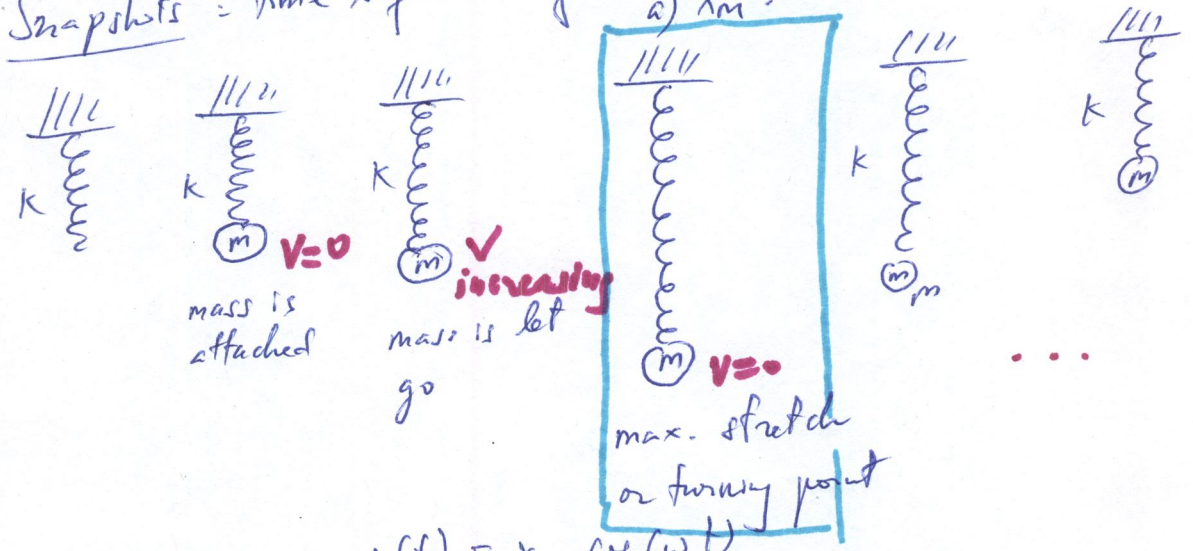 Snapshots = time
a) xm
K
K
m
V=0
mass is
attached
K
m
V
increasing
mass is let
go
m
V=0
max. stretch
or turning point
K
m
m
K
m
...